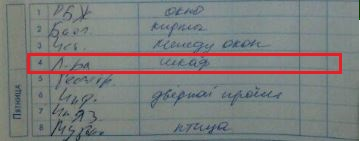 Пятница
1 ОБЖ окно
2 Биол. кирпич
3 между окон
4 Л-ра шкаф
5 Геогр.
6 дверной проём
7
8 Музыка птица